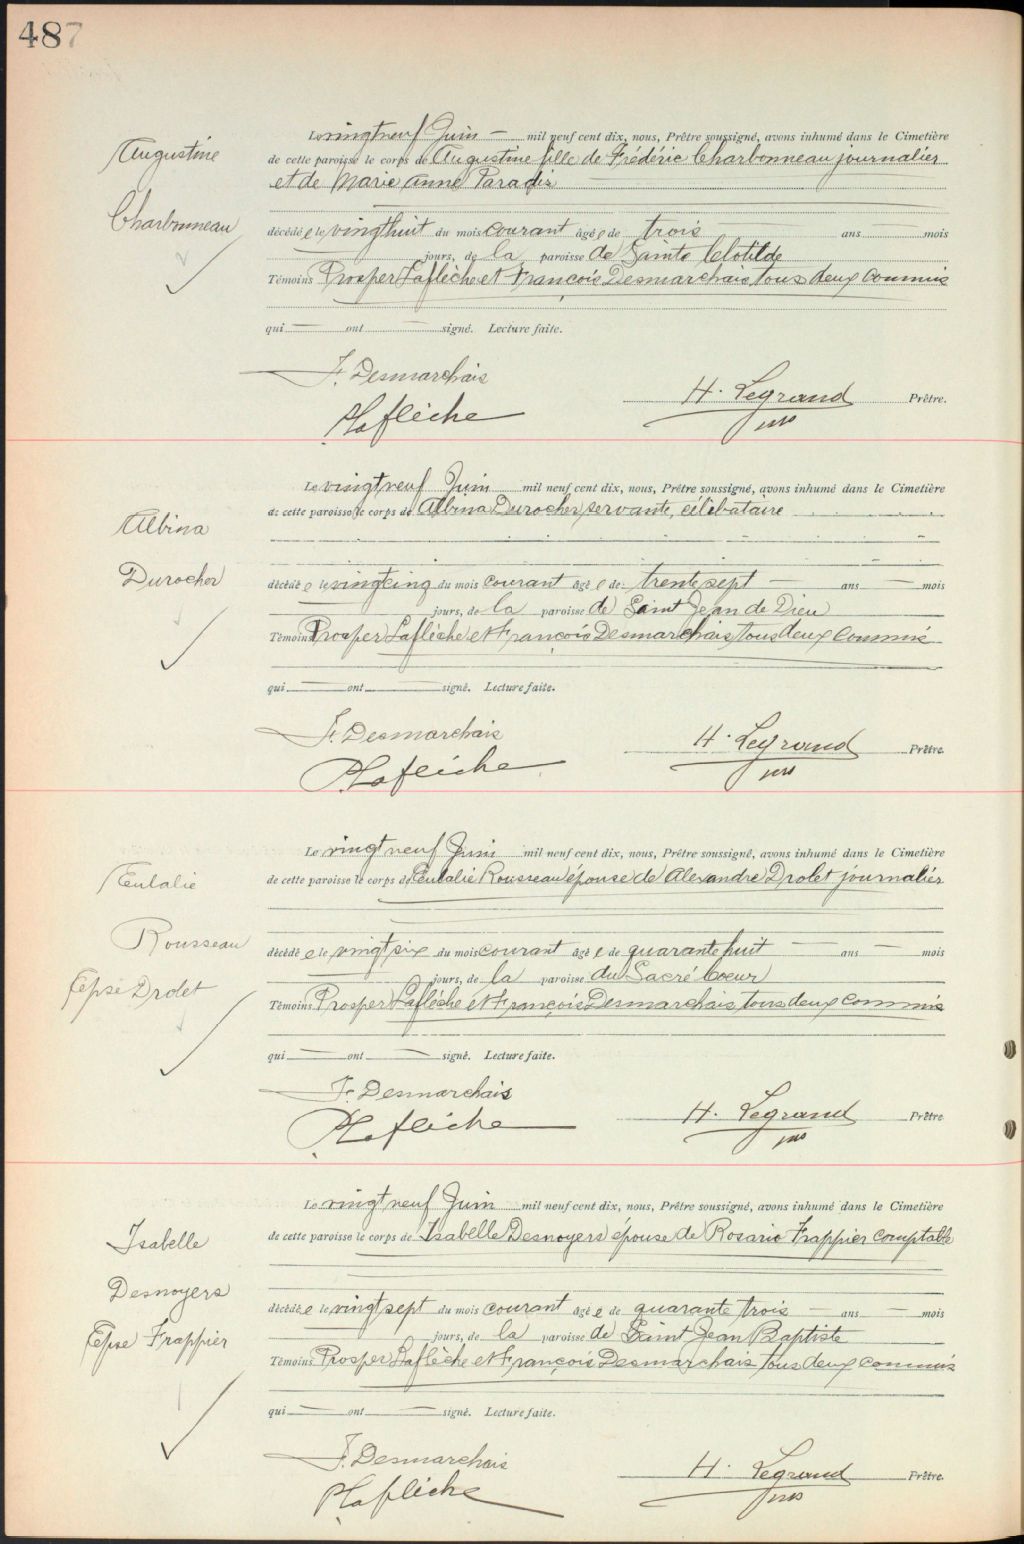 487
Augustine
Charbonneau
Le vingt neuf Juin — mil neuf cent dix, nous, Prêtre soussigné, avons inhumé dans le Cimetière
de cette paroisse le corps de Augustine fille de Frédéric Charbonneau journalier
et de Marie Anne Paradis
décédé e le vingthuit du mois courant âgé e de trois — ans — mois
— jours, de la paroisse de Sainte Clotilde
Témoins Prosper Laflèche et François Desmarchais tous deux commis
qui — ont — signé. Lecture faite.
F. Desmarchais
H. Legrand Prêtre.
PLaflèche
Albina
Durocher
Le vingt neuf Juin mil neuf cent dix, nous, Prêtre soussigné, avons inhumé dans le Cimetière
de cette paroisse le corps de Albina Durocher servante, célibataire
décédé e le vingtcinq du mois courant âgé e de trente sept — ans — mois
— jours, de la paroisse de Saint Jean de Dieu
Témoins Prosper Laflèche et François Desmarchais tous deux commis
qui — ont — signé. Lecture faite.
F. Desmarchais
H. Legrand Prêtre.
PLaflèche
Eulalie
Rousseau
Epse Drolet
Le vingt neuf Juin mil neuf cent dix, nous, Prêtre soussigné, avons inhumé dans le Cimetière
de cette paroisse le corps de Eulalie Rousseau épouse de Alexandre Drolet journalier
décédé e le vingt six du mois courant âgé e de quarante huit — ans — mois
— jours, de la paroisse du Sacré Coeur
Témoins Prosper Laflèche et François Desmarchais tous deux commis
qui — ont — signé. Lecture faite.
F. Desmarchais
H. Legrand Prêtre.
PLaflèche
Isabelle
Desnoyers
Epse Frappier
Le vingt neuf Juin mil neuf cent dix, nous, Prêtre soussigné, avons inhumé dans le Cimetière
de cette paroisse le corps de Isabelle Desnoyers épouse de Rosario Frappier comptable
décédé e le vingt sept du mois courant âgé e de quarante trois — ans — mois
— jours, de la paroisse de Saint Jean Baptiste
Témoins Prosper Laflèche et François Desmarchais tous deux commis
qui — ont — signé. Lecture faite.
F. Desmarchais
H. Legrand Prêtre.
PLaflèche